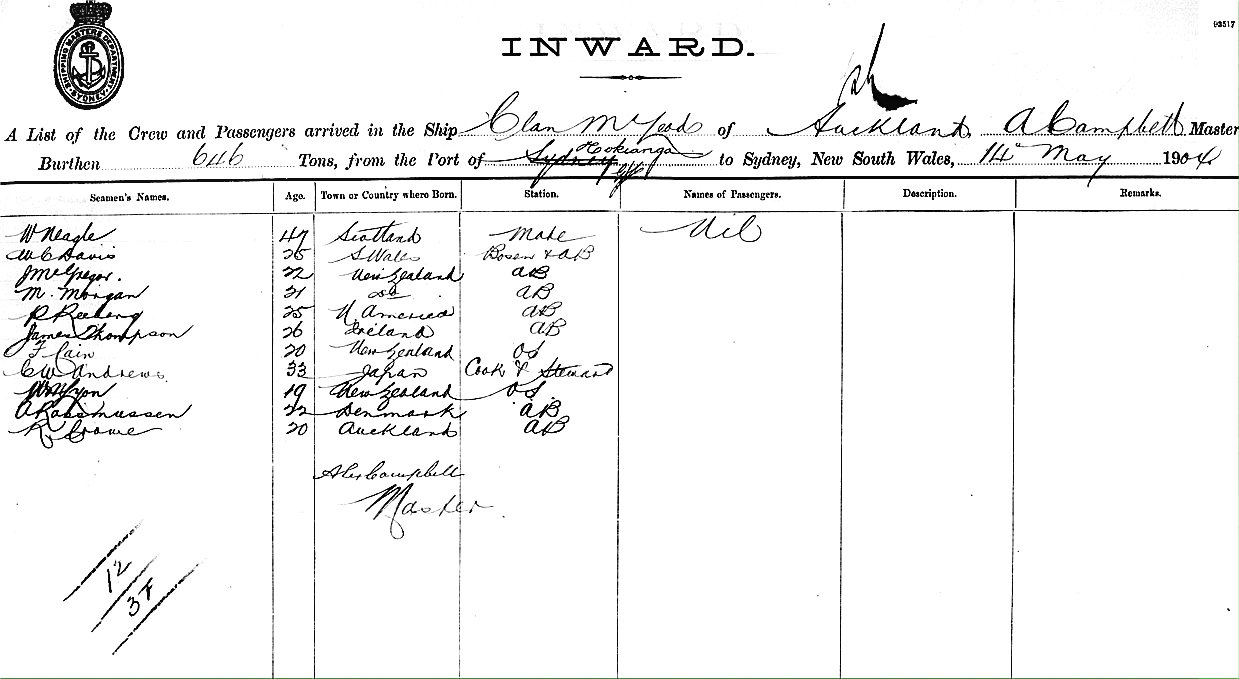 93517
SHIPPING MASTERS DEPARTMENT SYDNEY
INWARD.
A List of the Crew and Passengers arrived in the Ship Clan McLeod of Auckland, A Campbell Master
Hokianga
Burthen 646 Tons, from the Port of Sydney to Sydney, New South Wales, 14th May 1904
Seamen's Names. Age. Town or Country where Born. Station. Names of Passengers. Description. Remarks.
W Neagle 47 Scotland Mate Nil
W C Davis 26 S Wales Bosen & AB
J McGregor. 22 New Zealand AB
M. Morgan 21 do AB
P 25 N America AB
James Thompson 26 Ireland AB
F Cain 20 New Zealand OS
C W Andrews 33 Japan Cook & Steward
19 New Zealand OS
A Rassmussen 22 Denmark AB
R Crowe 20 Auckland AB
Alex Campbell
Master
12
3F